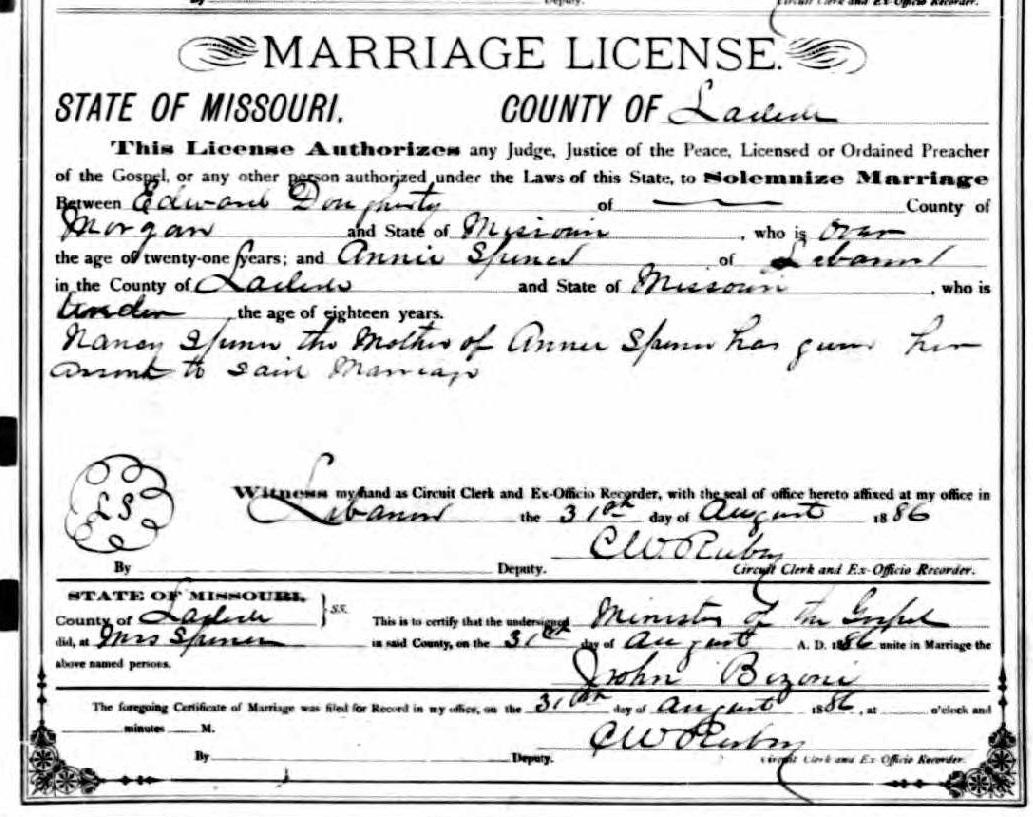 Circuit Clerk and Ex-Officio Recorder.
MARRIAGE LICENSE.
STATE OF MISSOURI. COUNTY OF Laclede
This License Authorizes any Judge, Justice of the Peace, Licensed or Ordained Preacher
of the Gospel, or any other person authorized under the Laws of this State, to Solemnize Marriage
Between Edward Dougherty of County of
Morgan and State of Missouri , who is over
the age of twenty-one years; and Annie Spencer of Lebanon
in the County of Laclede and State of Missouri , who is
under the age of eighteen years.
Nancy Spencer the Mother of Annie Spencer has given her
assent to said Marriage
L S
Witness my hand as Circuit Clerk and Ex-Officio Recorder, with the seal of office hereto affixed at my office in
Lebanon the 31st day of August 1886
C W Rubey
By Deputy. Circuit Clerk and Ex-Officio Recorder.
STATE OF MISSOURI,
County of Laclede } ss. This is to certify that the undersigned Minister of the Gospel
did, at Mrs Spencer in said County, on the 31st day of August A. D. 1886 unite in Marriage the
above named persons. John
The foregoing Certificate of Marriage was filed for Record in my office, on the 31st day of August 1886, at o'clock and
minutes M.
C W Rubey
By Deputy. Circuit Clerk and Ex-Officio Recorder.